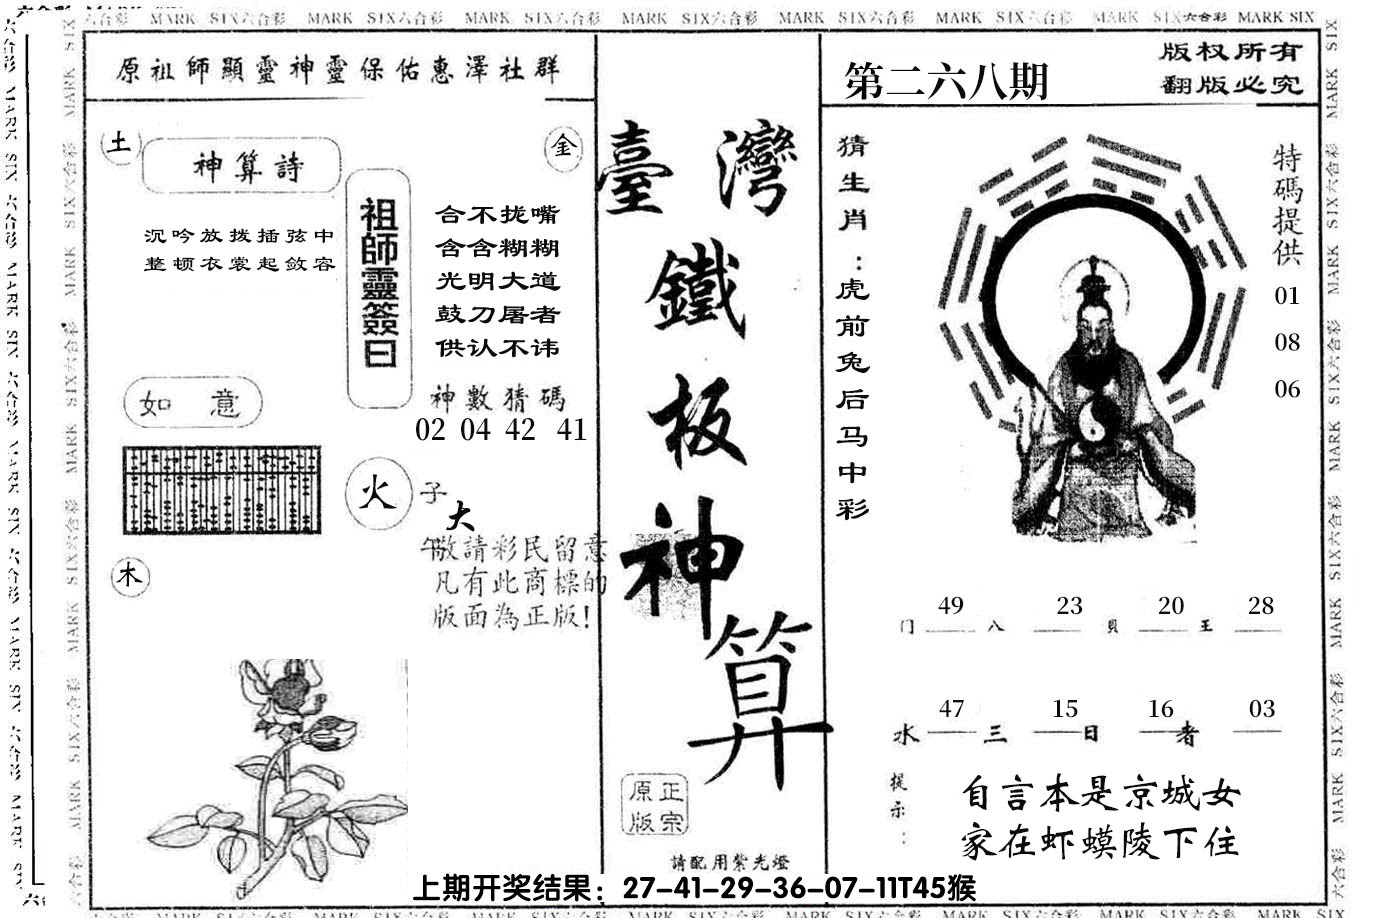 MARK SIX六合彩 MARK SIX六合彩 MARK SIX六合彩 MARK SIX六合彩 MARK SIX六合彩 MARK SIX六合彩 MARK SIX六合彩 MARK SIX
原祖師顯靈神靈保佑惠澤社群
土
神算詩
金
沉吟放拨插弦中
整顿衣裳起敛容
祖師靈簽曰
合不拢嘴
含含糊糊
光明大道
鼓刀屠者
供认不讳
神數猜碼
02 04 42 41
如意
火
子
大
午
敬請彩民留意
凡有此商標的
版面為正版!
木
臺灣
鐵
板
神
算
正宗
原版
請配用紫光燈
第二六八期
版权所有
翻版必究
猜生肖:虎前兔后马中彩
特碼提供
01
08
06
49 23 20 28
门 八 貝 王
47 15 16 03
水 三 日 者
提示:
自言本是京城女
家在虾蟆陵下住
上期开奖结果：27-41-29-36-07-11T45猴